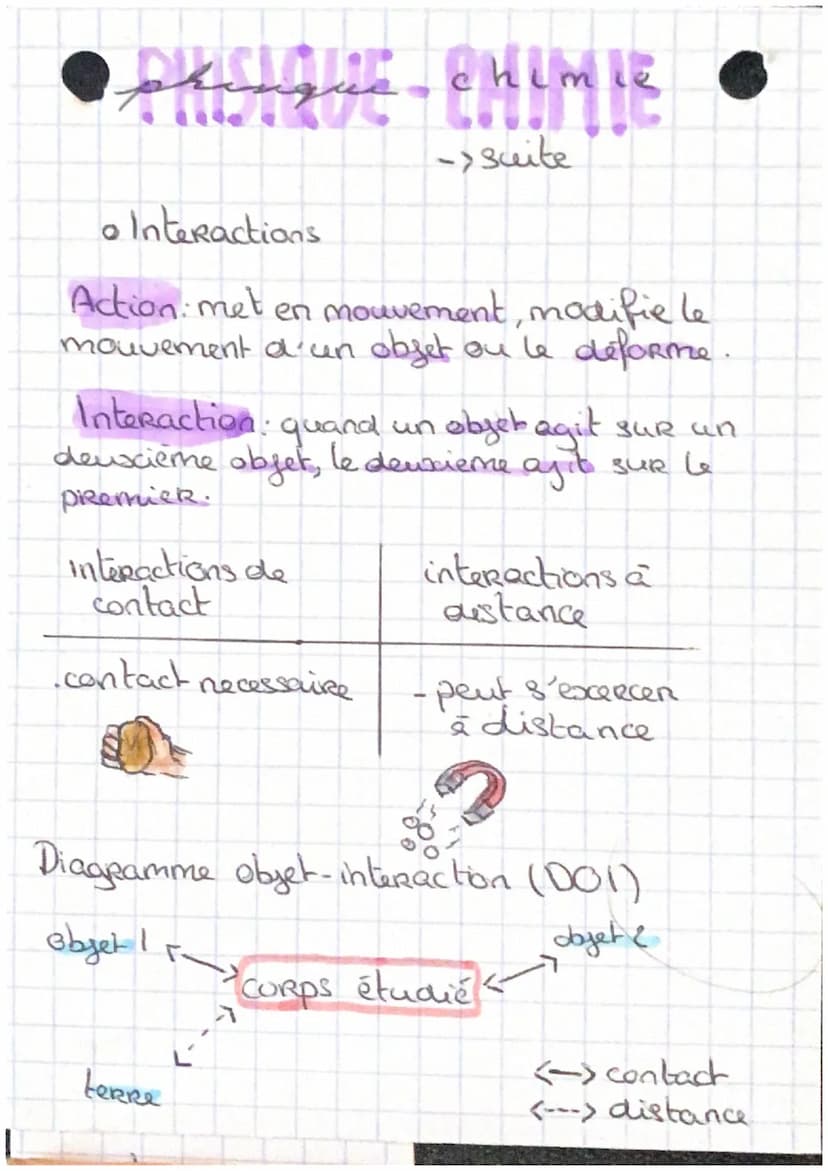 PHYSIQUE-CHIMIE
physique - chimie
-> suite
o Interactions
Action: met en mouvement, modifie le
mouvement d'un objet ou le déforme.
Interaction: quand un objet agit sur un
deuxième objet, le deuxième agit sur le
premier.
interactions de
contact
interactions à
distance
.contact necessaire
- peut s'excercer
à distance
Diagramme objet-interaction (DOI)
objet 1
objet 2
corps étudié
terre
<-> contact
<---> distance